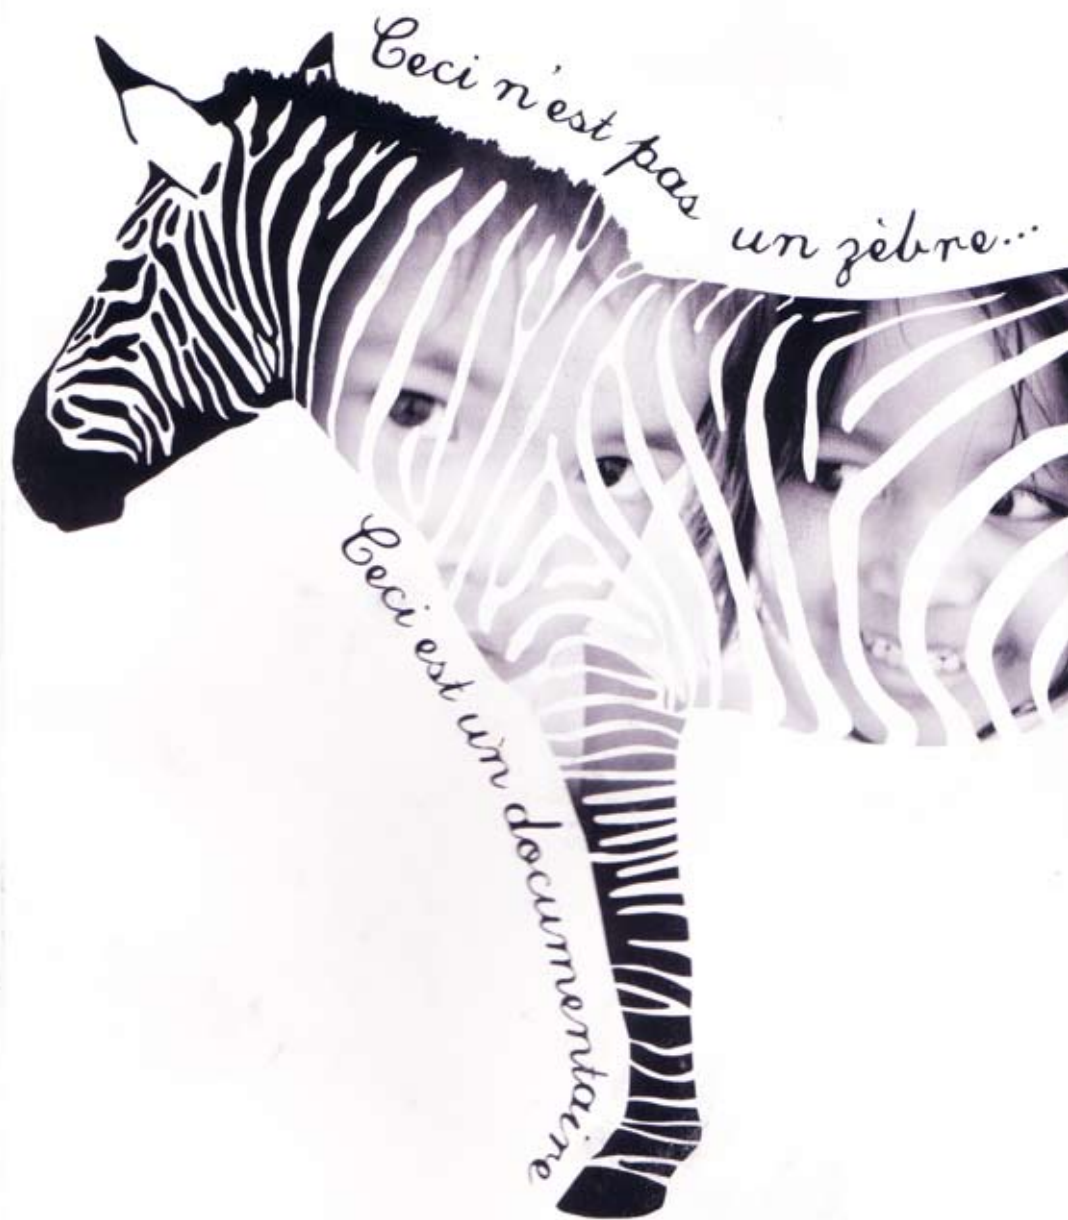 Ceci n'est pas un zèbre...
Ceci est un documentaire